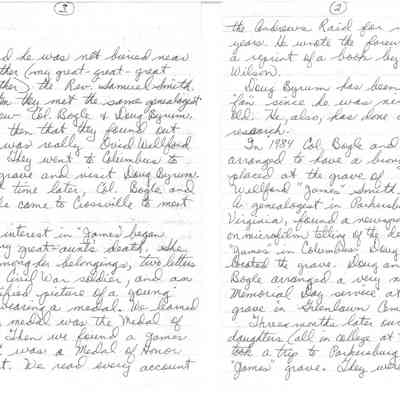 3
d he was not buried near
ther (my great-great-great
ther) the Rev. Samuel Smith.
n they met the same genealogist
ew Col. Bogle & Doug Byrum.
then that they found out
was really Ovid Wellford
They went to Columbus to
grave and visit Doug Byrum.
time later, Col. Bogle and
le came to Crossville to meet
interest in "James" began
my great-aunts death. She
among her belongings, two letters
Civil War soldier, and an
ified picture of a young
wearing a medal. We learned
medal was the Medal of
Then we found a James
was a Medal of Honor
t. We read every account
2
the Andrews Raid for
years. He wrote the forew
a reprint of a book by
Wilson.
Doug Byrum has been
"fan" since he was
old. He, also, has done
research.
In 1984 Col. Bogle and
arranged to have a bron
placed at the grave of
Wellford "James" Smith,
A genealogist in Parkersbu
Virginia, found a newspa
on microfilm telling of the de
"James" in Columbus. Doug
located the grave. Doug an
Bogle arranged a very n
Memorial Day service at
grave in Greenlawn Cem
Three months later our
daughters (all in college at
took a trip to Parkersburg
"James" grave. They were